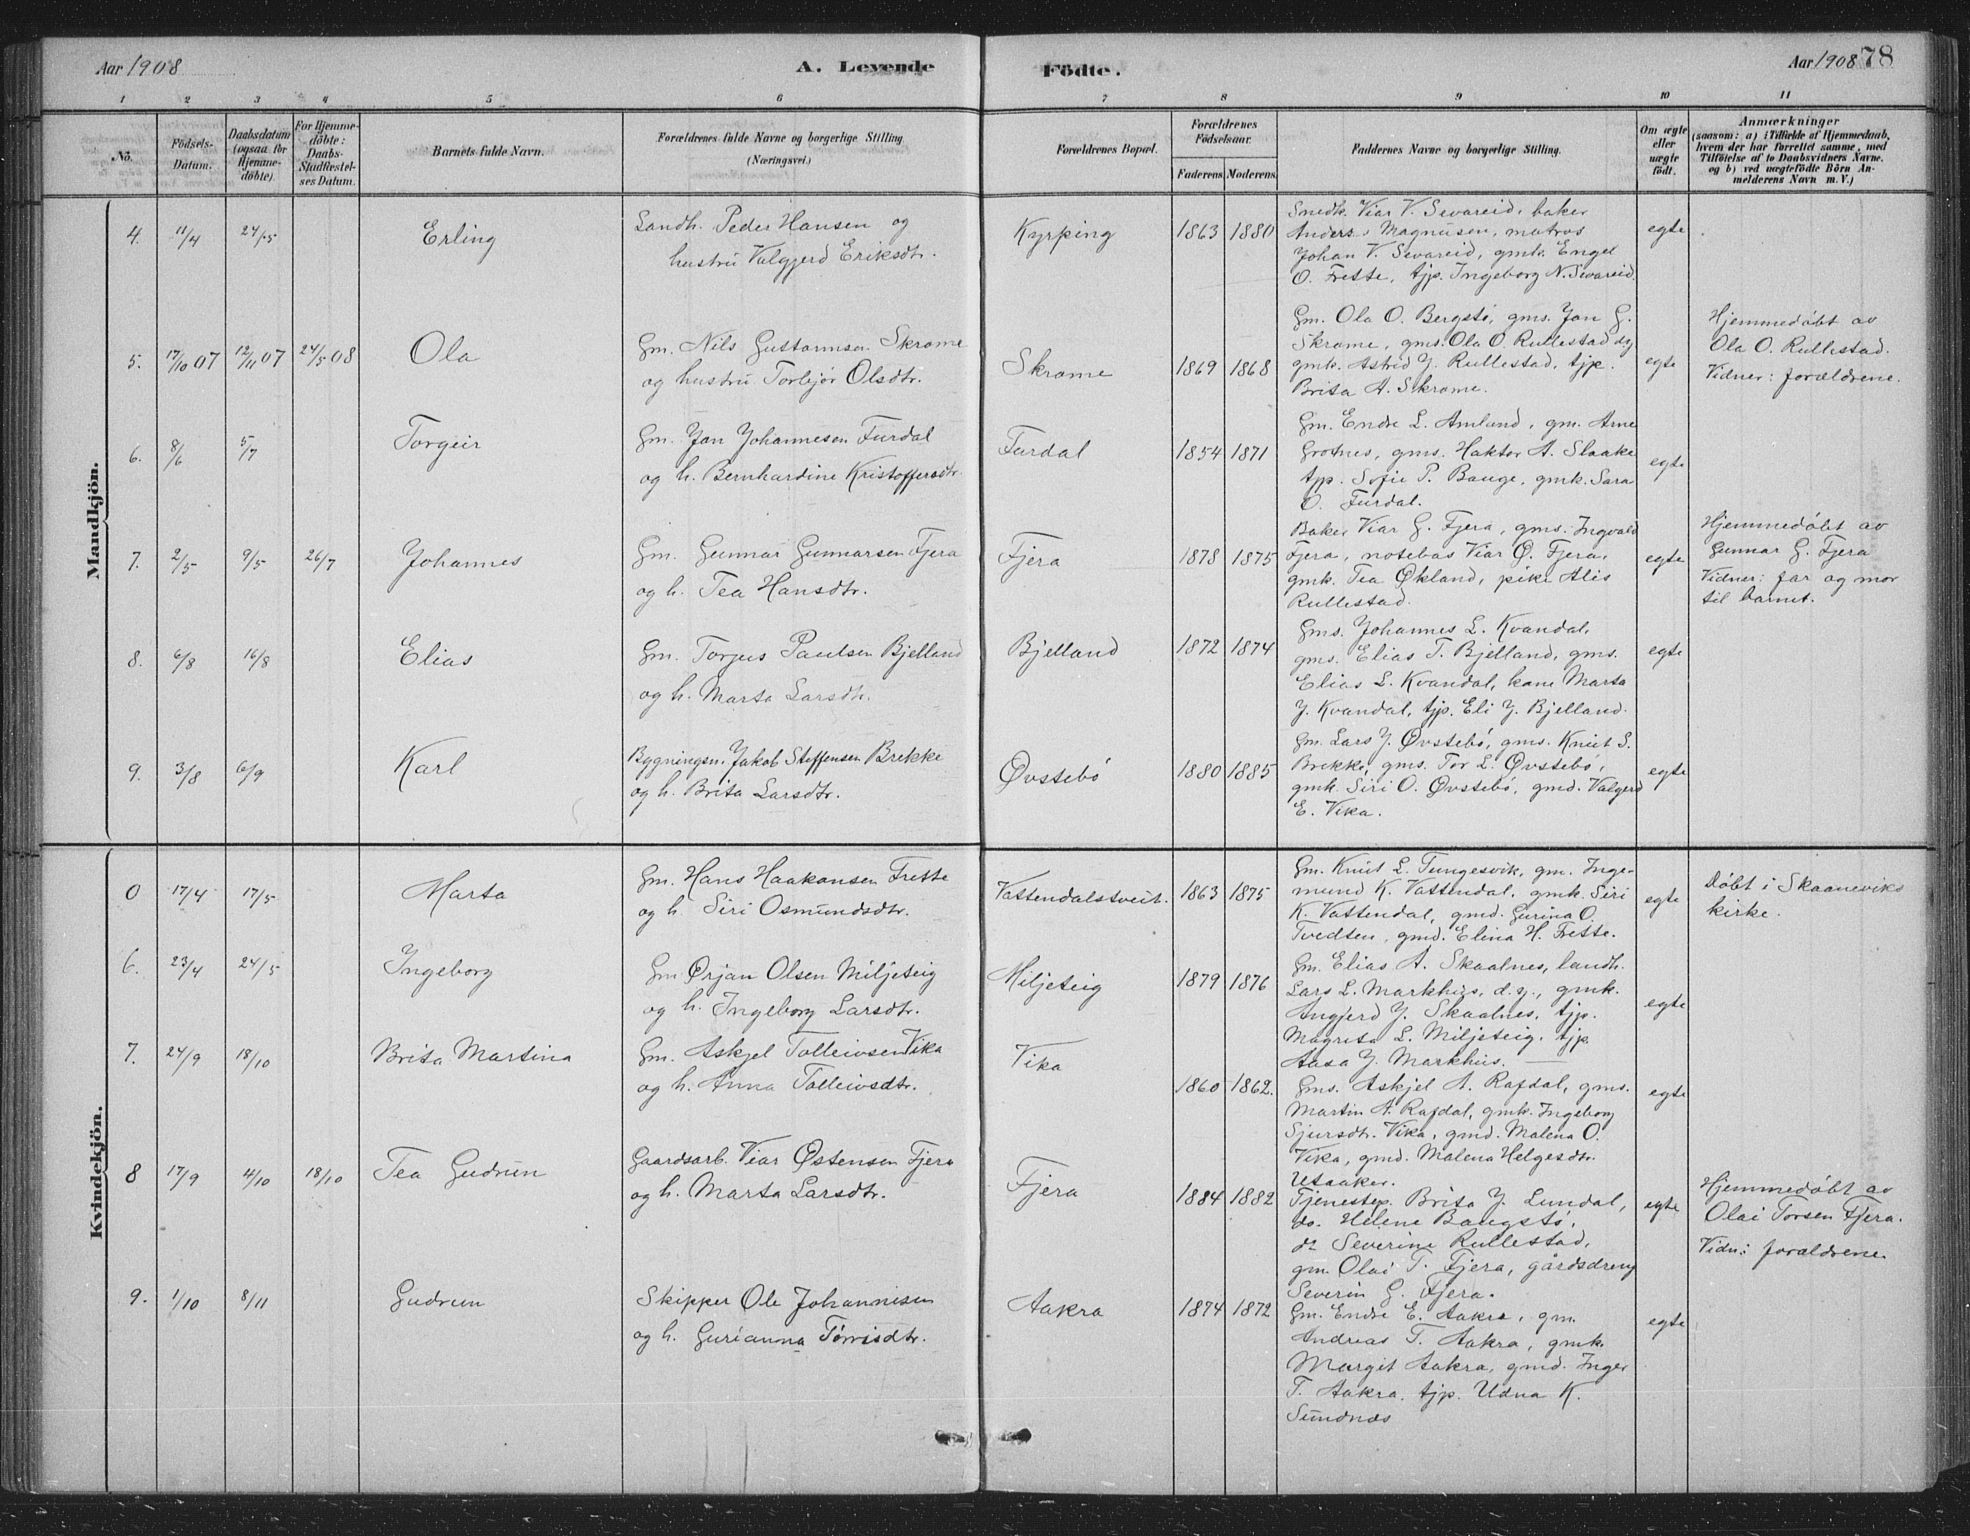 Aar 1908
A. Levende
Födte.
Aar 1908 78
1 2 3 4 5 6 7 8 9 10 11
No.
Födsels-
Datum.
Daabsdatum
(ogsaa for
Hjemme-
döbte).
For Hjemme-
döbte:
Daabs-
Stadfæstel-
ses Datum.
Barnets fulde Navn.
Forældrenes fulde Navne og borgerlige Stilling
(Næringsvei.)
Forældrenes Bopæl.
Forældrenes
Födselsaar.
Faderens. Moderens.
Faddernes Navne og borgerlige Stilling.
Om ægte
eller
uægte
födt.
Anmærkninger
(saasom: a) i Tilfælde af Hjemmedaab,
hvem der har forrettet samme, med
Tilföielse af to Daabsvidners Navne.
og b) ved uægtefödte Börn An-
melderens Navn m. V.)
Mandkjön.
4. 11/4 24/5
Erling
Landh. Peder Hansen og
hustru Valgjerd Eriksdtr.
Kyrping
1863 1880
Smedk. Viar V. Sevareid, baker
Anders Magnusen, matros
Johan V. Sevareid, gmk. Engel
O. Frette, tjp. Ingeborg N. Sevareid.
egte
5. 17/10 07 12/11 07 24/5 08
Ola
Gm. Nils Gustavnsen Skrome
og hustru Torbjør Olsdtr.
Skrome
1869 1868
Gm. Ola O. Bergstø, gms. Jon G.
Skrome, gms. Ola O. Rullestad dy
gmk. Astrid J. Rullestad, tjp.
Brita A. Skrome.
egte
Hjemmedøbt av
Ola O. Rullestad.
Vidner: forældrene.
6. 8/6 5/7
Torgeir
Gm. Jon Johannesen Furdal
og h. Bernhardine Kristoffersdtr.
Furdal
1854 1871
Gm. Endre L. Amlund, gm. Arne
Grotnes, gms. Haktor A. Slaake
tjp. Sofie P. Bauge, gmk. Sara
O. Furdal.
egte
7. 2/5 9/5 26/7
Johannes
Gm. Gunnar Gunnarsen Fjera
og h. Tea Hansdtr.
Fjera
1878 1875
Baker Viar G. Fjera, gms. Ingvald
Fjera, notebas Viar Ø. Fjera,
gmk. Tea Økland, pike Alis
Rullestad.
egte
Hjemmedøbt av
Gunnar G. Fjera
Vidner: far og mor
til barnet.
8. 6/8 16/8
Elias
Gm. Torjus Paulsen Bjelland
og h. Marta Larsdtr.
Bjelland
1872 1874
Gms. Johannes L. Kvandal,
gms. Elias T. Bjelland, gms.
Elias L. Kvandal, kone Marta
J. Kvandal, tjp. Eli J. Bjelland.
egte
9. 3/8 6/9
Karl
Bygningsn. Jakob Steffensen Brekke
og h. Brita Larsdtr.
Øvstebø
1880 1885
Gm. Lars J. Øvstebø, gms. Knut S.
Brekke, gms. Tor L. Øvstebø,
gmk. Siri O. Øvstebø, gmd. Valgerd
E. Vika.
egte
Kvindekjön.
0 17/4 17/5
Marta
Gm. Hans Haakonsen Frette
og h. Siri Osmundsdtr.
Vattendalstveit.
1863 1875
Gm. Knut L. Tungesvik, gm. Inge-
mund K. Vattendal, gmk. Siri
K. Vattendal, gmd. Gurina O.
Tvedten, gmd. Elina H. Frette.
egte
Døbt i Skaaneviks
kirke.
6. 23/4 24/5
Ingeborg
Gm. Ørjan Olsen Miljeteig
og h. Ingeborg Larsdtr.
Miljeteig
1879 1876
Gm. Elias A. Skaalnes, landh.
Lars L. Markhus, d.y., gmk.
Angjerd J. Skaalnes, tjp.
Magreta L. Miljeteig, tjp.
Aasa J. Markhus.
egte
7. 24/9 18/10
Brita Martina
Gm. Askjel Tolleivsen Vika
og h. Anna Tolleivsdtr.
Vika
1860 1862.
Gms. Askjel A. Rafdal, gms.
Martin A. Rafdal, gmk. Ingeborg
Sjursdtr. Vika, gmd. Malena O.
Vika, gmd. Malena Helgesdtr.
Utaaker.
egte
8 17/9 4/10 18/10
Tea Gudrun
Gaardsarb. Viar Østensen Fjera
og h. Marta Larsdtr.
Fjera
1884 1882
Tjenestep. Brita J. Lundal,
do. Helene Baugstø,
do Severine Rullestad,
gm. Olai T. Fjera, gårdsdreng
Severin G. Fjera.
egte
Hjemmedøbt av
Olai Torsen Fjera.
Vidn: forældrene.
9. 1/10 8/11
Gudrun
Skipper Ole Johannesen
og h. Gurianna Tørrisdtr.
Aakra
1874 1872
Gm. Endre E. Aakra, gm.
Andreas T. Aakra, gmk.
Margit Aakra, gmd. Inger
T. Aakra, tjp. Udna K.
Sundnæs
egte